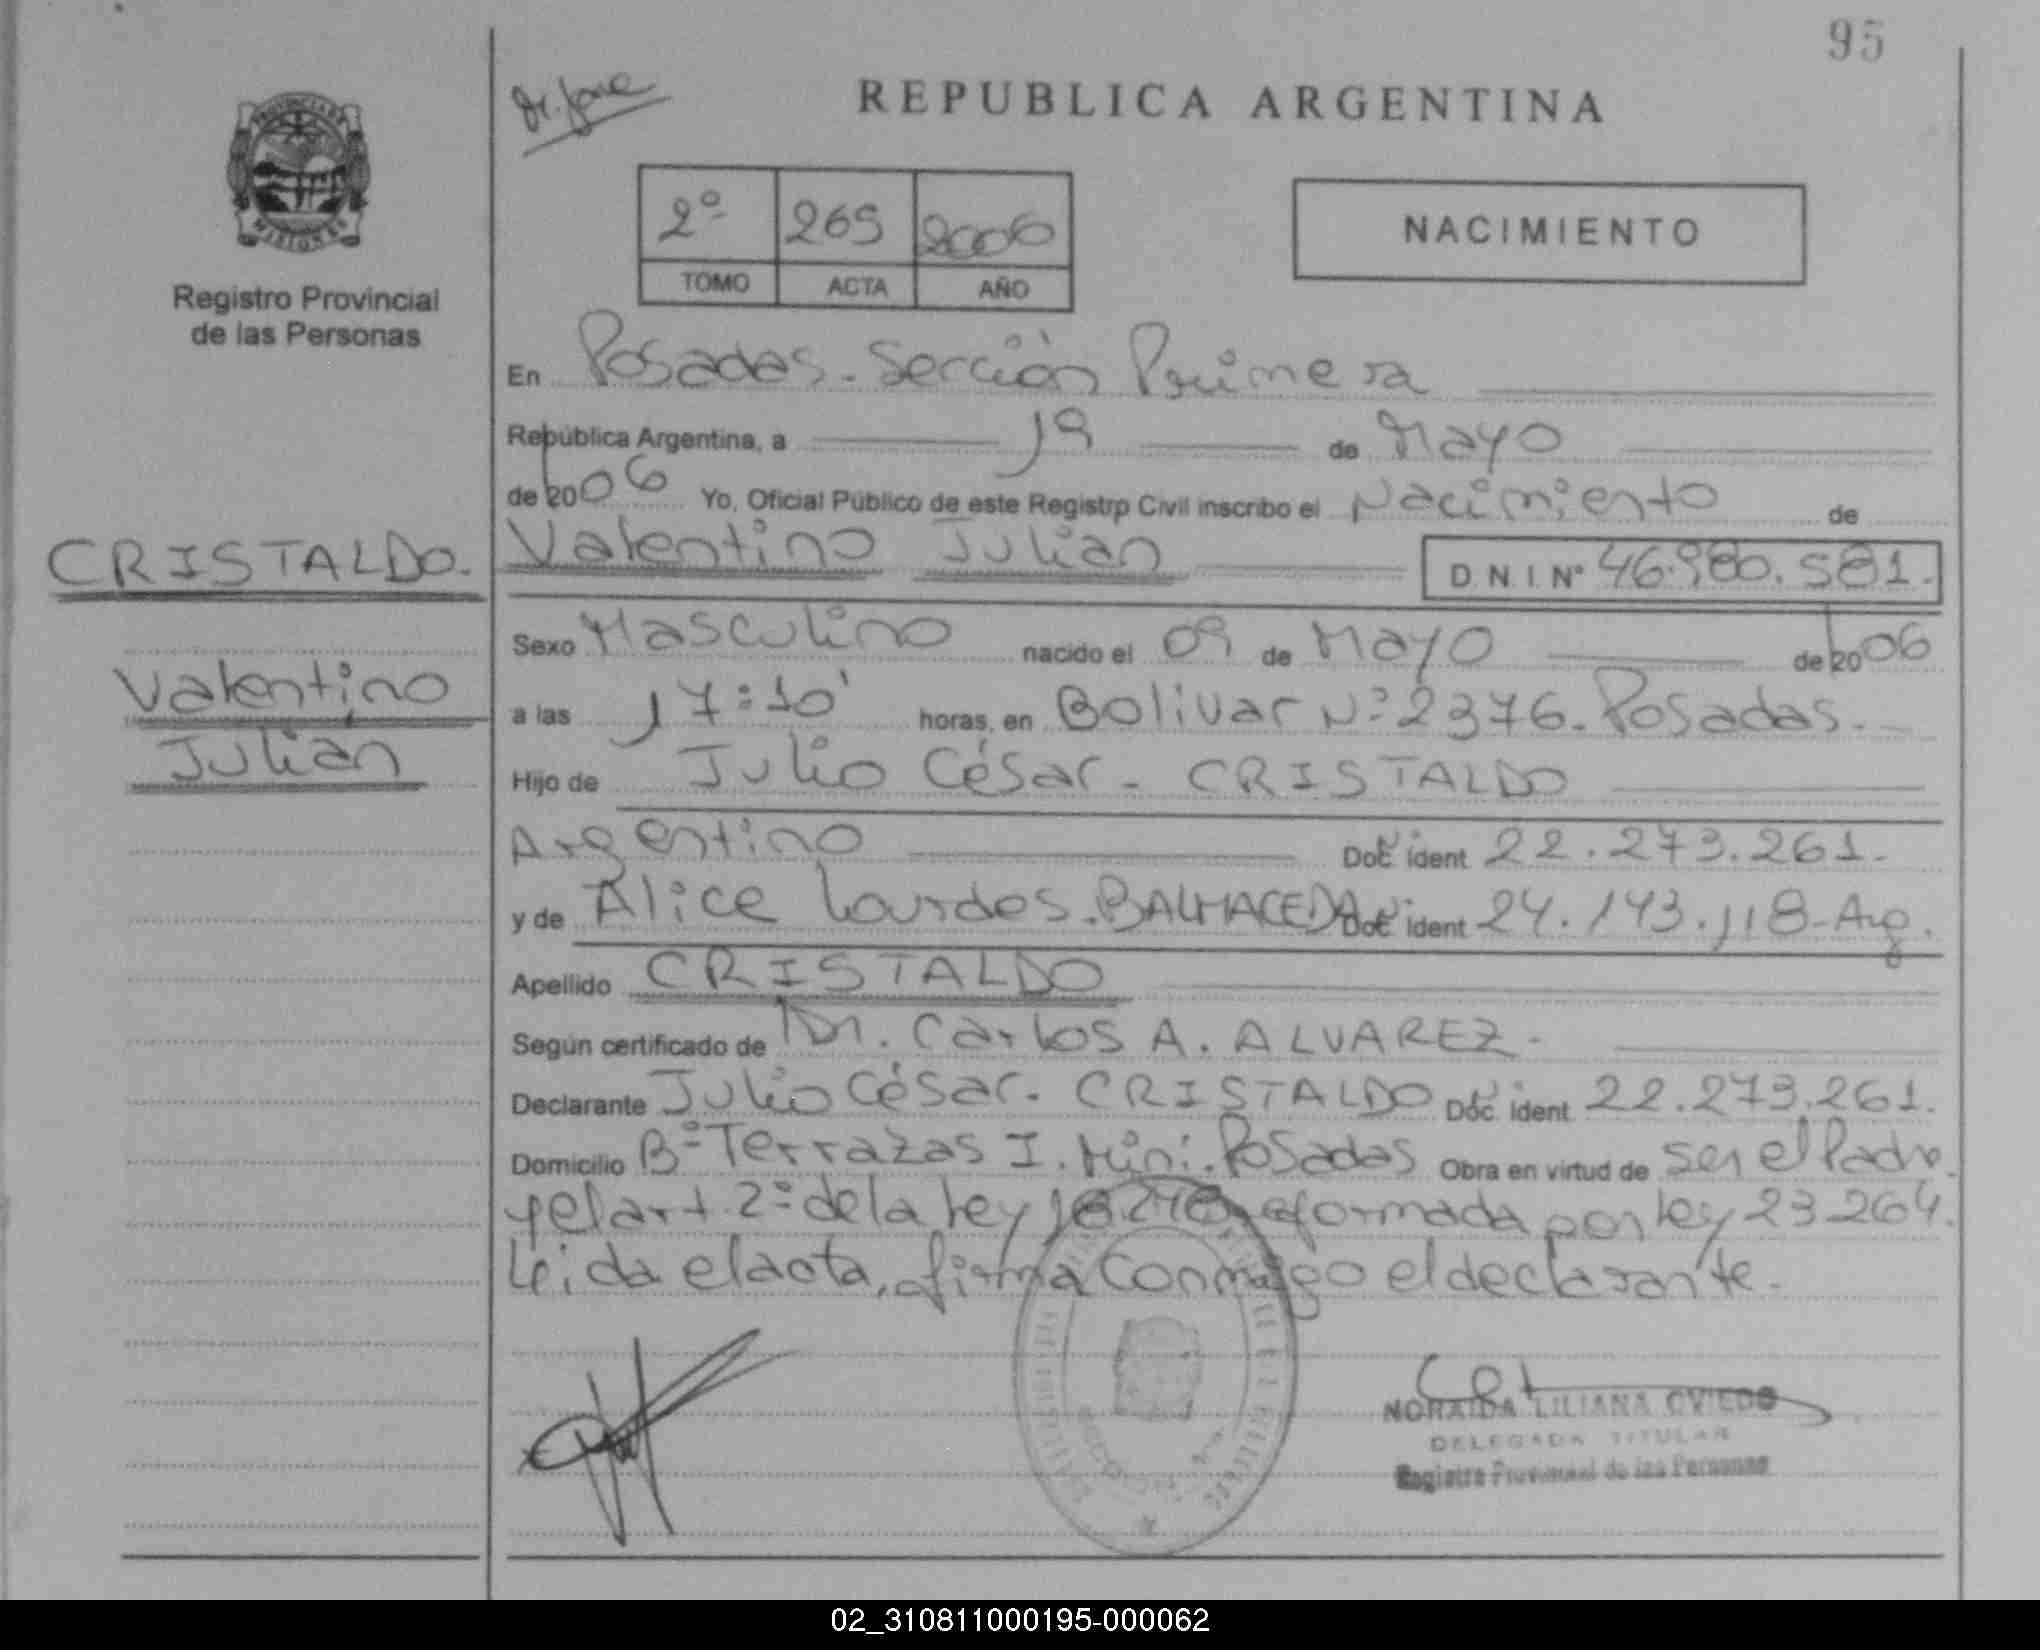 95
REPUBLICA ARGENTINA
PROVINCIA DE
MISIONES
Registro Provincial
de las Personas
2º 269 2006
TOMO ACTA AÑO
NACIMIENTO
En Posadas. Sección Primera
República Argentina, a 19 de Mayo
de 2006 Yo, Oficial Público de este Registro Civil inscribo el Nacimiento de
CRISTALDO.
Valentino Julian
D.N.I. Nº 46.980.581.
Valentino
Julian
Sexo Masculino nacido el 09 de Mayo de 2006
a las 17:10' horas, en Bolivar Nº 2376. Posadas.
Hijo de Julio César - CRISTALDO
Argentino Doc. ident 22.273.261.
y de Alice Lourdes. BALMACEDA Doc. ident 24.143.118-Arg.
Apellido CRISTALDO
Según certificado de Dr. Carlos A. ALVAREZ.
Declarante Julio César. CRISTALDO Doc. ident 22.273.261.
Domicilio Bº Terrazas I. Mini. Posadas Obra en virtud de ser el Padre
y el art. 2º de la Ley 18.248 reformada por Ley 23.264.
Leida el acta, firma conmigo el declarante.
NORAIDA LILIANA OVIEDO
DELEGADA TITULAR
Registro Provincial de las Personas
02_310811000195-000062